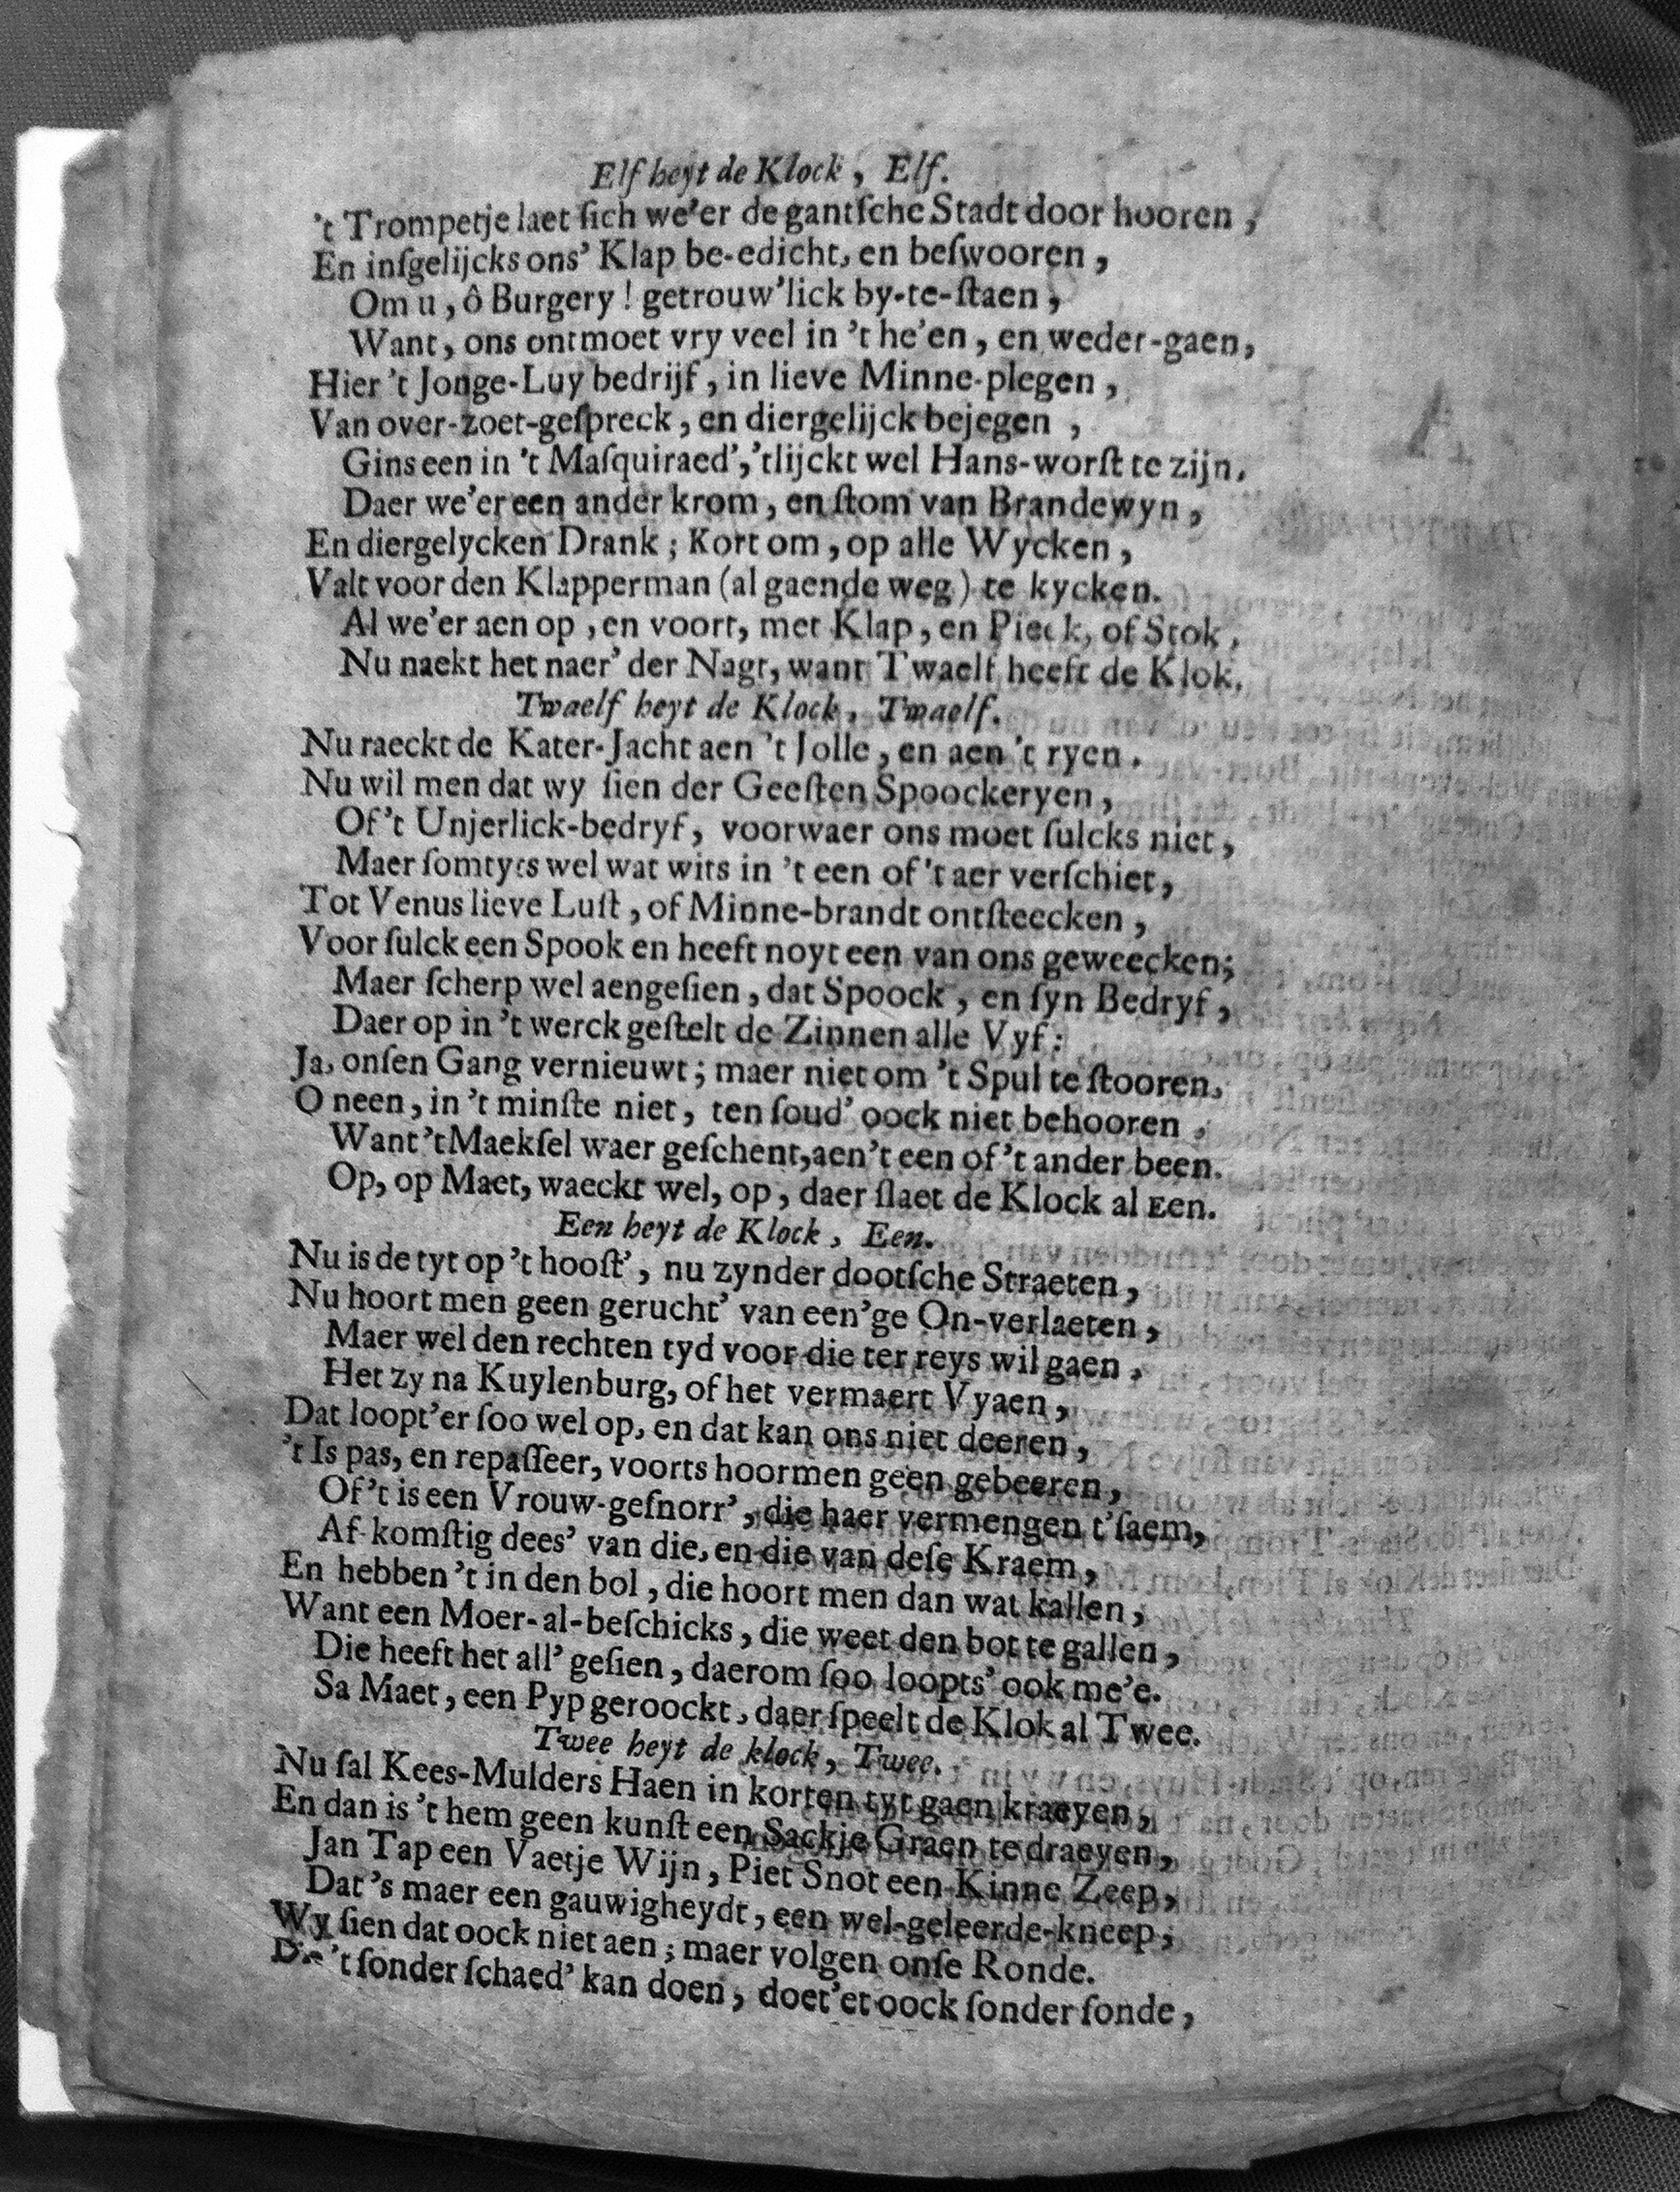 Elf heyt de Klock, Elf.
't Trompetje laet ſich we'er de gantſche Stadt door hooren,
En inſgelijcks ons' Klap be-edicht, en beſwooren,
Om u, ô Burgery! getrouw'lick by-te-ſtaen,
Want, ons ontmoet vry veel in 't he'en, en weder-gaen,
Hier 't Jonge-Luy bedrijf, in lieve Minne-plegen,
Van over-zoet-geſpreck, en diergelijck bejegen,
Gins een in 't Maſquiraed', 'tlijckt wel Hans-worſt te zijn.
Daer we'er een ander krom, en ſtom van Brandewyn,
En diergelycken Drank; Kort om, op alle Wycken,
Valt voor den Klapperman (al gaende weg) te kycken.
Al we'er aen op, en voort, met Klap, en Pieck, of Stok,
Nu naekt het naer' der Nagt, want Twaelf heeft de Klok.
Twaelf heyt de Klock, Twaelf.
Nu raeckt de Kater-Jacht aen 't Jolle, en aen 't ryen.
Nu wil men dat wy ſien der Geeſten Spoockeryen,
Of 't Unjerlick-bedryf, voorwaer ons moet ſulcks niet,
Maer ſomtyts wel wat wits in 't een of 't aer verſchiet,
Tot Venus lieve Luſt, of Minne-brandt ontſteecken,
Voor ſulck een Spook en heeft noyt een van ons geweecken;
Maer ſcherp wel aengeſien, dat Spoock, en ſyn Bedryf,
Daer op in 't werck geſtelt de Zinnen alle Vyf:
Ja, onſen Gang vernieuwt; maer niet om 't Spul te ſtooren,
O neen, in 't minſte niet, ten ſoud' oock niet behooren,
Want 't Maekſel waer geſchent, aen 't een of 't ander been.
Op, op Maet, waeckt wel, op, daer ſlaet de Klock al Een.
Een heyt de Klock, Een.
Nu is de tyt op 't hooſt', nu zynder dootſche Straeten,
Nu hoort men geen gerucht' van een'ge On-verlaeten,
Maer wel den rechten tyd voor die ter reys wil gaen,
Het zy na Kuylenburg, of het vermaert Vyaen,
Dat loopt'er ſoo wel op, en dat kan ons niet deeren,
't Is pas, en repaſſeer, voorts hoormen geen gebeeren,
Of 't is een Vrouw-geſnorr', die haer vermengen t'ſaem,
Af-komſtig dees' van die, en die van deſe Kraem,
En hebben 't in den bol, die hoort men dan wat kallen,
Want een Moer-al-beſchicks, die weet den bot te gallen,
Die heeft het all' geſien, daerom ſoo loopts' ook me'e.
Sa Maet, een Pyp geroockt, daer ſpeelt de Klok al Twee.
Twee heyt de klock, Twee.
Nu ſal Kees-Mulders Haen in korten tyt gaen kraeyen,
En dan is 't hem geen kunſt een Sackje Graen te draeyen,
Jan Tap een Vaetje Wijn, Piet Snot een Kinne Zeep,
Dat 's maer een gauwigheydt, een wel-geleerde-kneep;
Wy ſien dat oock niet aen; maer volgen onſe Ronde.
Die 't ſonder ſchaed' kan doen, doet'et oock ſonder ſonde,